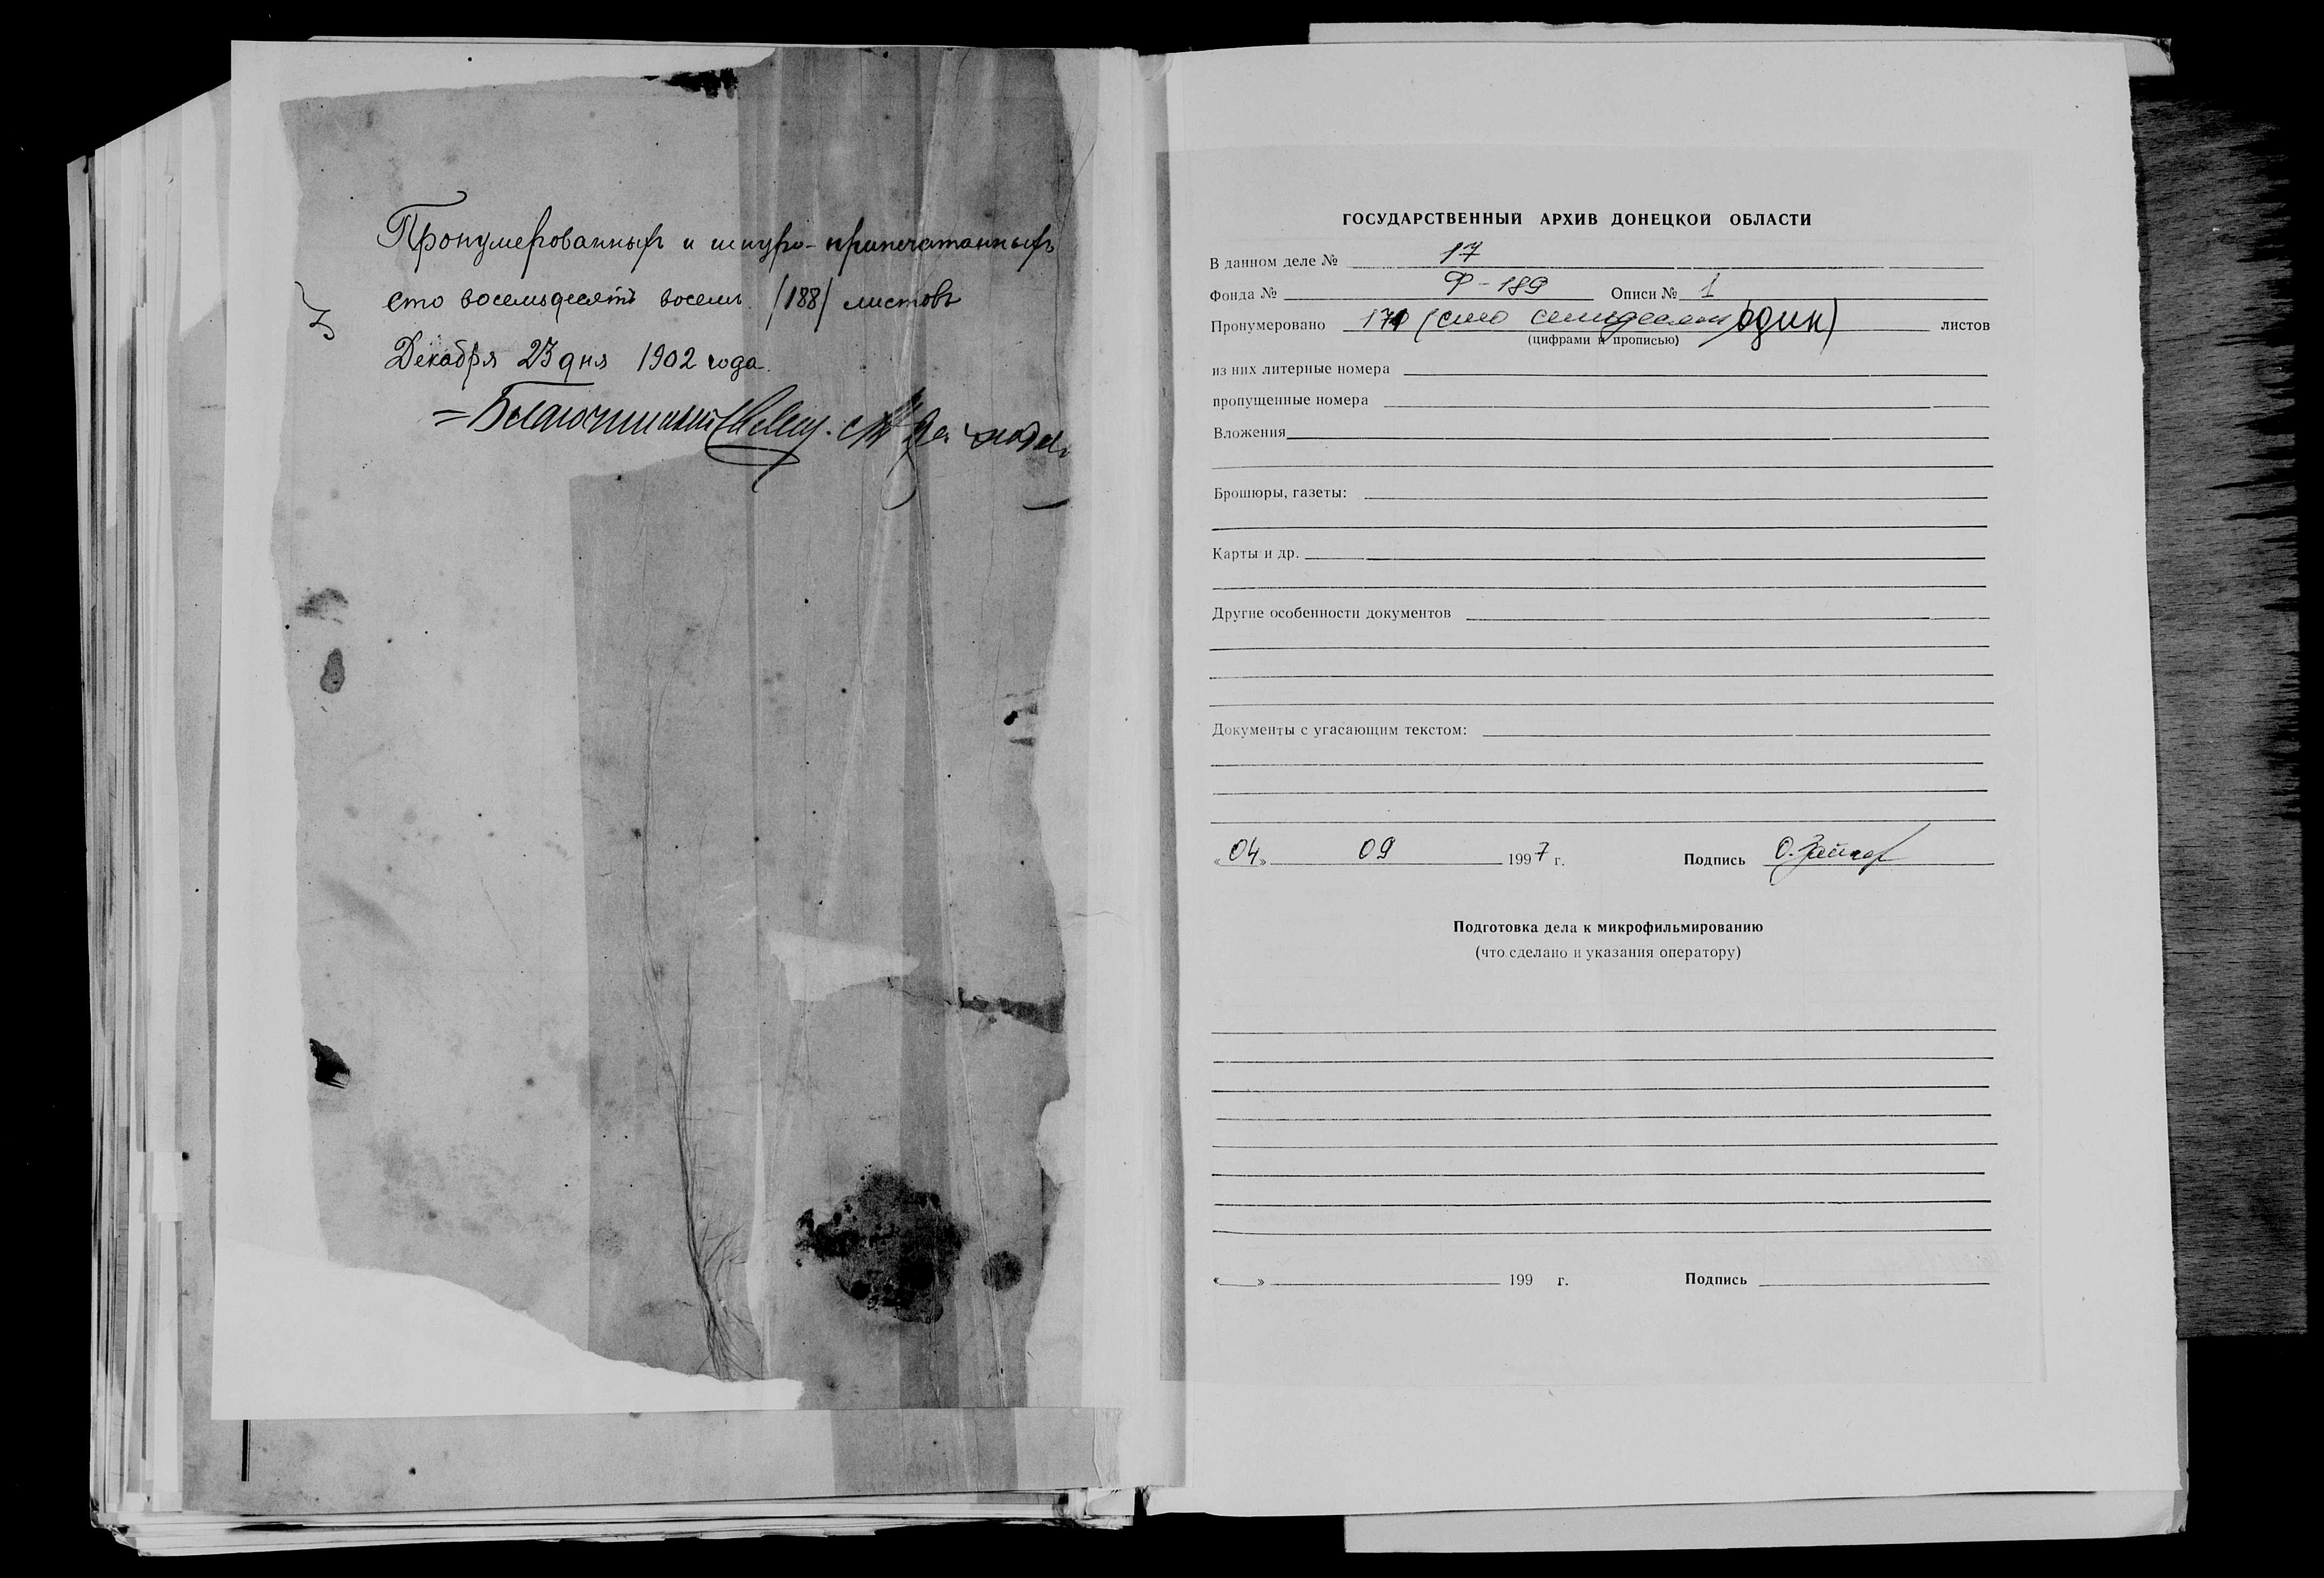 Пронумерованныхъ и шнуро-припечатанныхъ
сто восемьдесятъ восемь /188/ листовъ
Декабря 23 дня 1902 года.
ГОСУДАРСТВЕННЫЙ АРХИВ ДОНЕЦКОЙ ОБЛАСТИ
В данном деле № 17
Фонда № Ф-189 Описи № 1
Пронумеровано 171 (сто семьдесят один) листов
(цифрами и прописью)
из них литерные номера
пропущенные номера
Вложения
Брошюры, газеты:
Карты и др.
Другие особенности документов
Документы с угасающим текстом:
«04» 09 1997 г. Подпись
Подготовка дела к микрофильмированию
(что сделано и указания оператору)
« » 199 г. Подпись